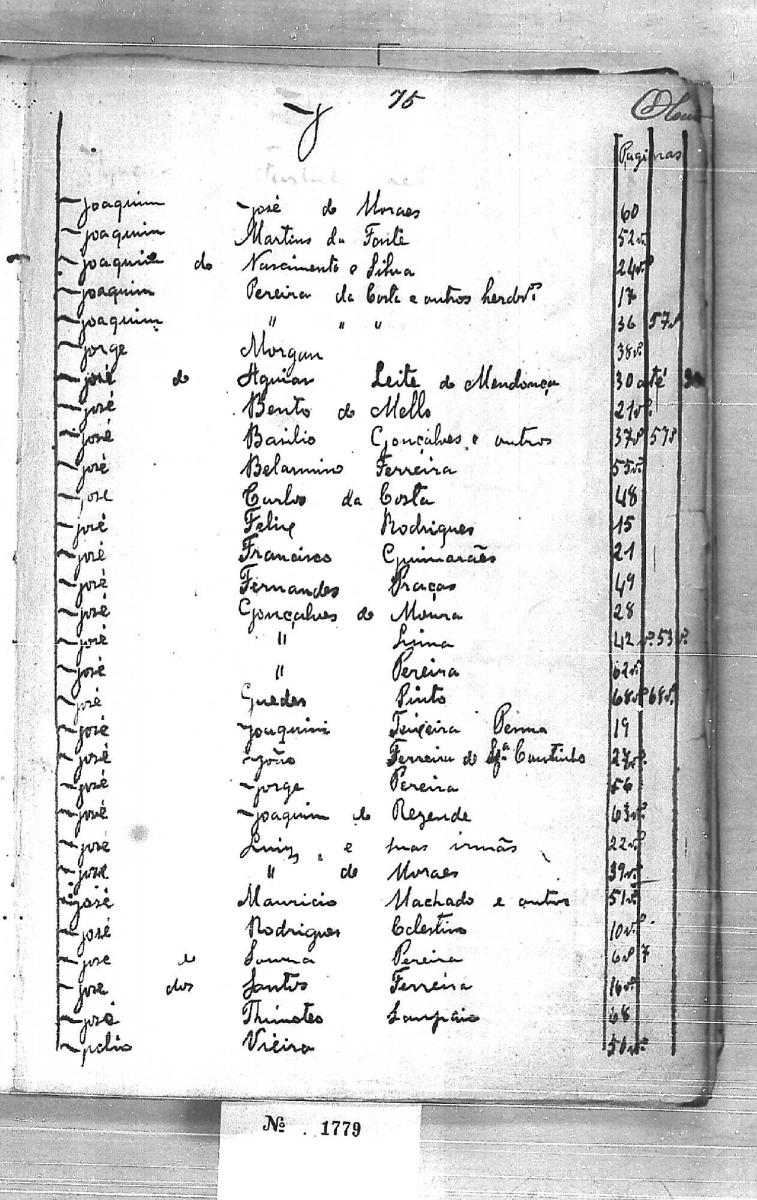 75
J
Paginas
Joaquim José de Moraes 60
Joaquim Martins da Fonte 52vº
Joaquim do Nascimento e Silva 24vº
Joaquim Pereira da Costa e outros herdrºs 17
Joaquim " " " 36 57vº
Jorge Morgan 38vº
José de Aguiar Leite de Mendonça 30 até
José Bento de Mello 21vº
José Basilio Gonçalves e outros 37vº 57vº
José Belarmino Ferreira 55vº
José Carlos da Costa 48
José Felix Rodrigues 15
José Francisco Guimarães 21
José Fernandes Praças 49
José Gonçalves de Moura 28
José " Lima 42vº 53vº
José " Pereira 62vº
José Guedes Pinto 68vº
José Joaquim Teixeira Penna 19
José João Ferreira de Coutinho 27vº
José Jorge Pereira 56
José Joaquim de Rezende 63vº
José Luiz e suas irmãs 22vº
José " de Moraes 39vº
José Mauricio Machado e outros 51vº
José Rodrigues Celestino 10vº
José de Souza Pereira 6vº 7
José dos Santos Ferreira 16vº
José Thimoteo Sampaio 68
Julio Vieira 50vº
Nº 1779